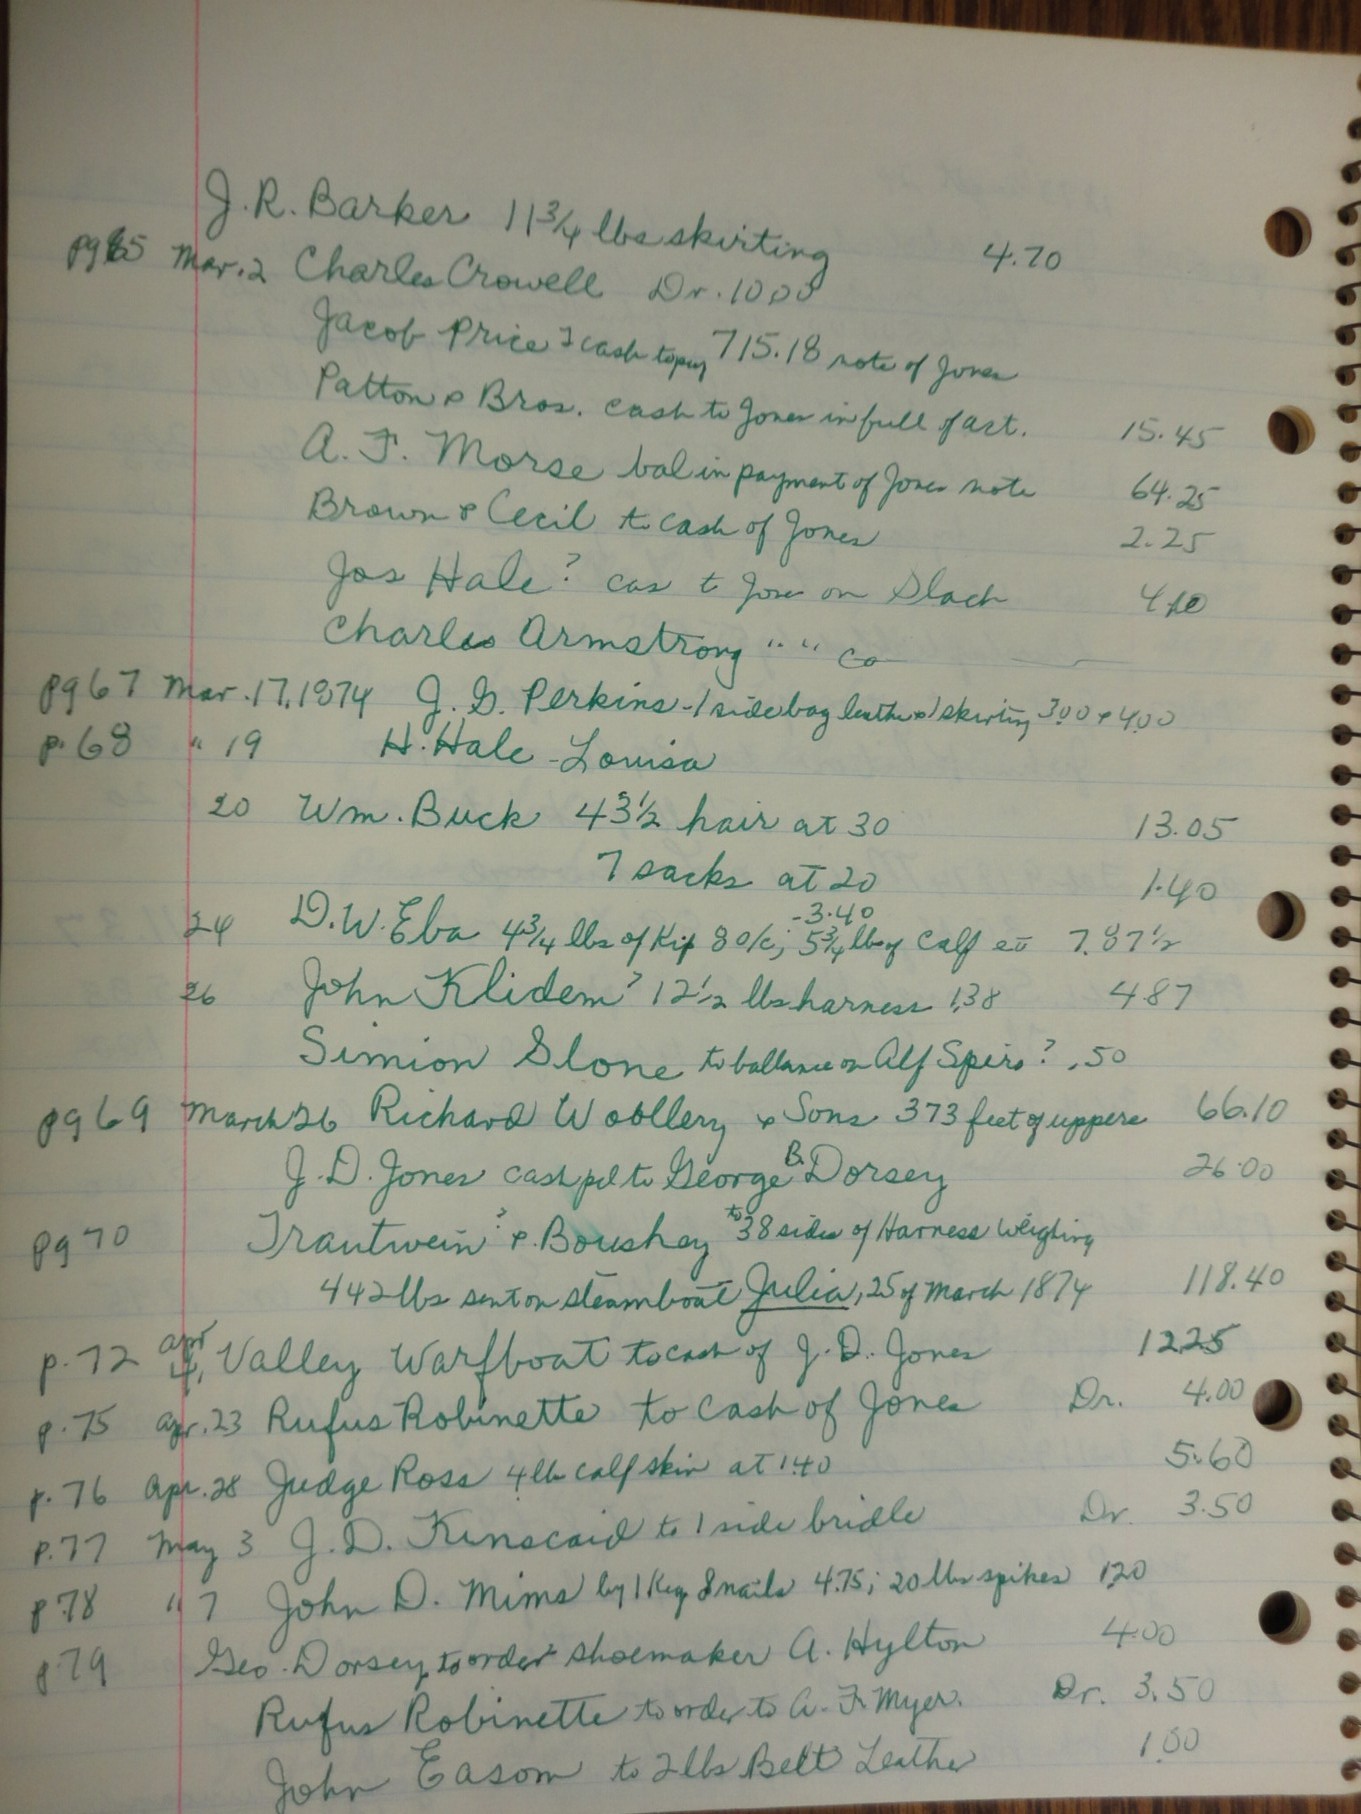 J. R. Barker 11 3/4 lbs skirting 4.70
pg 65 Mar. 2 Charles Crowell Dr. 10.00
Jacob Price ? cash to pay 715.18 note of Jones
Patton & Bros. cash to Jones in full of act. 15.45
A. F. Morse bal in payment of Jones note 64.25
Brown & Cecil to cash of Jones 2.25
Jos Hale? cas t Jones on Slach
Charles Armstrong " " co —
pg 67 Mar. 17, 1874 J. G. Perkins - 1 side bag leather & 1 skirting 3.00 & 4.00
p. 68 " 19 H. Hale - Louisa
20 Wm. Buck 43 1/2 hair at 30 13.05
7 sacks at 20 1.40
24 D. W. Eba 4 3/4 lbs of Kip 80/c; -3.40 5 3/4 lbs of Calf at 7.87 1/2
26 John Klidem? 12 1/2 lbs harness 1.38 4.87
Simion Slone to ballance on Alf Spirs? .50
pg 69 March 26 Richard Woollery & Sons 373 feet of uppers 66.10
J. D. Jones cash pd to George B. Dorsey 26.00
pg 70 Trautwein? & Boushay to 38 sides of Harness Weighing
442 lbs sent on steamboat Julia, 25 of March 1874 118.40
p. 72 apr 4, Valley Warfboat to cash of J. D. Jones 12.25
p. 75 apr. 23 Rufus Robinette to cash of Jones Dr. 4.00
p. 76 Apr. 28 Judge Ross 4 lb calf skin at 1.40 5.60
p. 77 May 3 J. D. Kinscaid to 1 side bridle Dr. 3.50
p 78 " 7 John D. Mims by 1 Keg 8 nails 4.75; 20 lbs spikes 1.20
p 79 Geo. Dorsey to order shoemaker A. Hylton 4.00
Rufus Robinette to order to A. F. Myer. Dr. 3.50
John Easom to 2 lbs Belt Leather 1.00